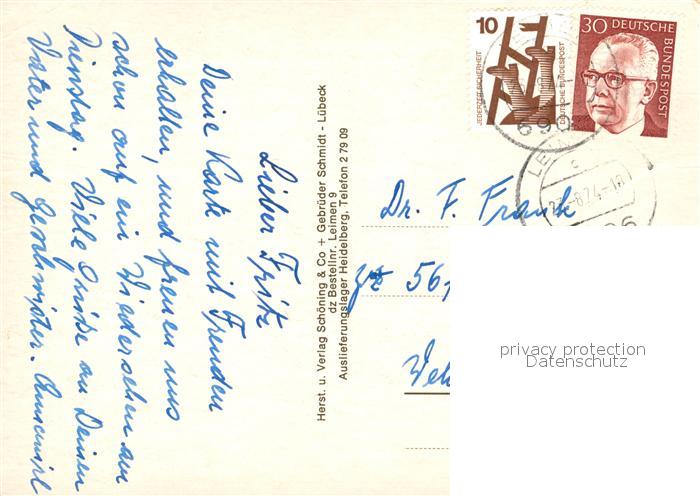 Lieber Fritz
Deine Karte mit Freuden
erhalten, und freuen uns
schon auf ein Wiedersehen am
Dienstag. Viele Grüße an Deinen
Vater und Geschwister.
Herst. u. Verlag Schöning & Co + Gebrüder Schmidt - Lübeck
dz Bestellnr. Leimen 9
Auslieferungslager Heidelberg, Telefon 2 79 09
10
JEDERZEIT SICHERHEIT
DEUTSCHE BUNDESPOST
30 DEUTSCHE
BUNDESPOST
690
LE
c
-8.74-18
06
Dr. F. Frank
561
privacy protection
Datenschutz